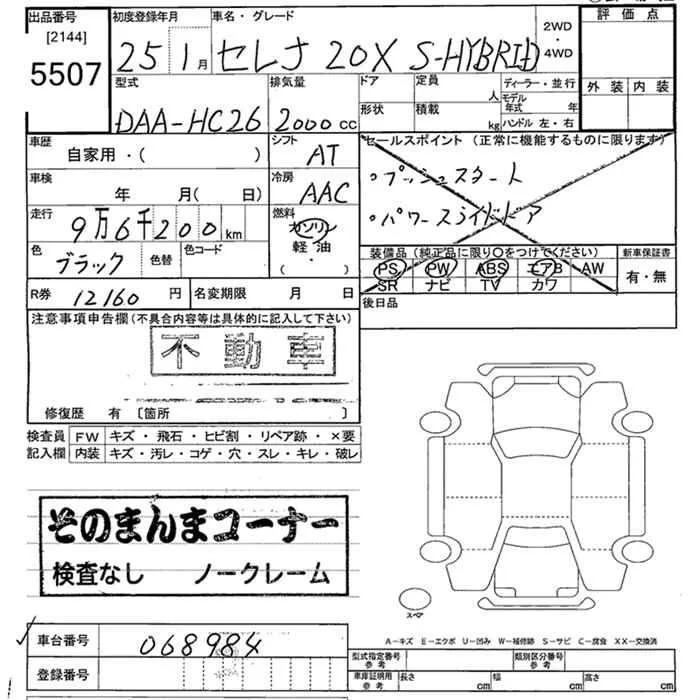 出品番号
[2144]
5507
初度登録年月
25 1月
車名・グレード
セレナ 20X S-HYBRID
2WD
・
4WD
評価点
外装 内装
型式
DAA-HC26
排気量
2000cc
ドア
定員
人
ディーラー・並行
モデル
年式 年
形状
積載
kg
ハンドル 左・右
車歴
自家用・( )
シフト
AT
セールスポイント (正常に機能するものに限ります)
・プッシュスタート
・パワースライドドア
車検
年 月(日)
冷房
AAC
走行
9万6千200km
燃料
ガソリン
軽・油
(・)
色
ブラック
色替
色コード
装備品(純正品に限り○をつけてください)
PS PW ABS エアB AW
SR ナビ TV カワ
新車保証書
有・無
R券 12160円
名変期限 月 日
後日品
注意事項申告欄(不具合内容等は具体的に記入して下さい)
不動車
修復歴 有 [箇所 ]
検査員 FW キズ・飛石・ヒビ割・リペア跡・×要
記入欄 内装 キズ・汚レ・コゲ・穴・スレ・キレ・破レ
そのまんまコーナー
検査なし ノークレーム
スペア
A-キズ E-エクボ U-凹み W-補修跡 S-サビ C-腐食 XX-交換済
車台番号 068984
登録番号
型式指定番号
参考
類別区分番号
参考
車庫証明用
参考
長さ cm 幅 cm 高さ cm